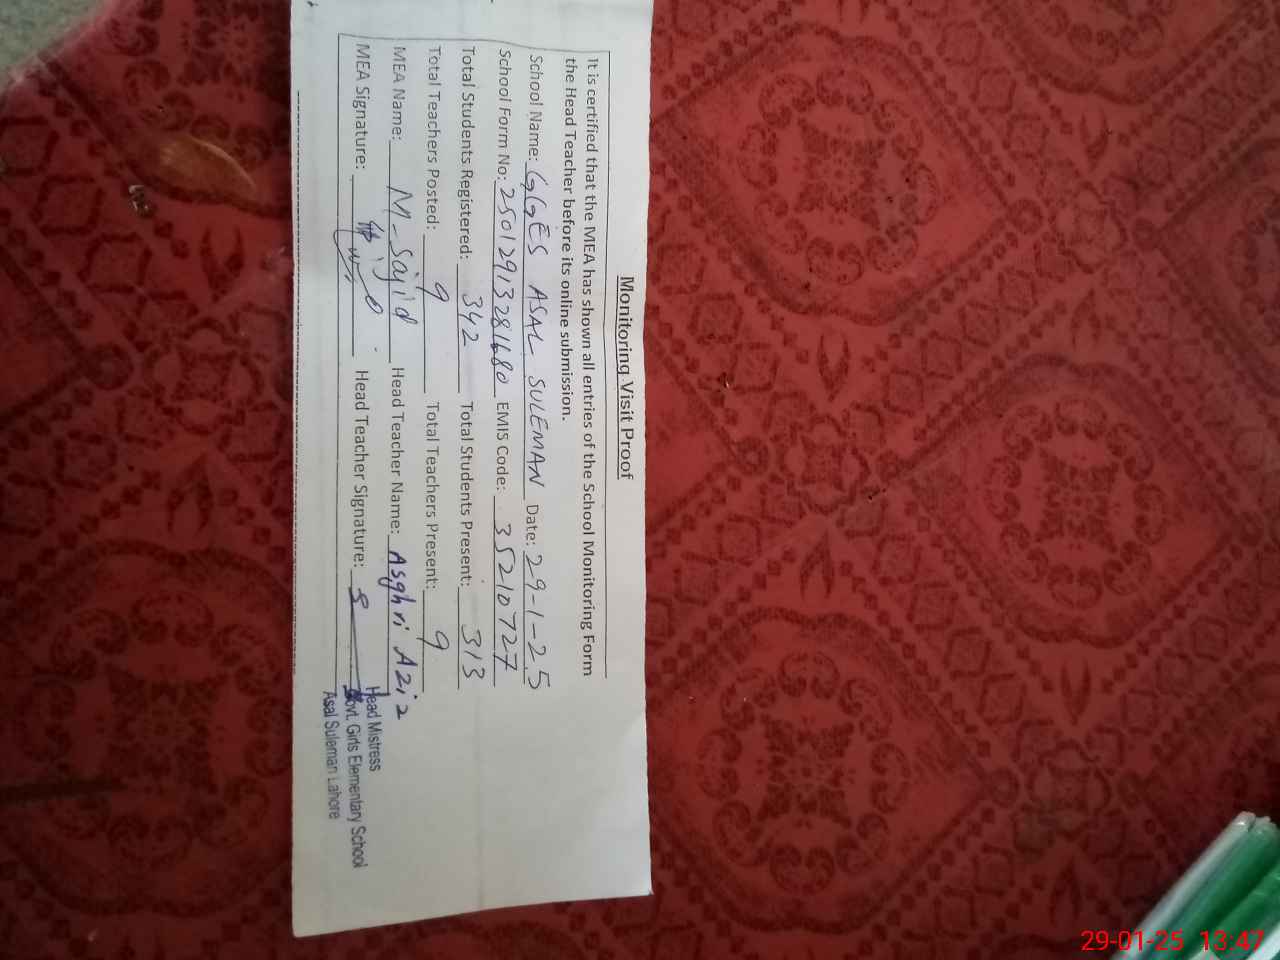 Monitoring Visit Proof
It is certified that the MEA has shown all entries of the School Monitoring Form
the Head Teacher before its online submission.
School Name: GGES ASAL SULEMAN Date: 29-1-25
School Form No: 25012913281680 EMIS Code: 35210727
Total Students Registered: 342 Total Students Present: 313
Total Teachers Posted: 9 Total Teachers Present: 9
MEA Name: M-Sajid Head Teacher Name: Asghri Aziz
MEA Signature: Head Teacher Signature:
Head Mistress
Govt. Girls Elementary School
Asal Suleman Lahore
29-01-25 13:47